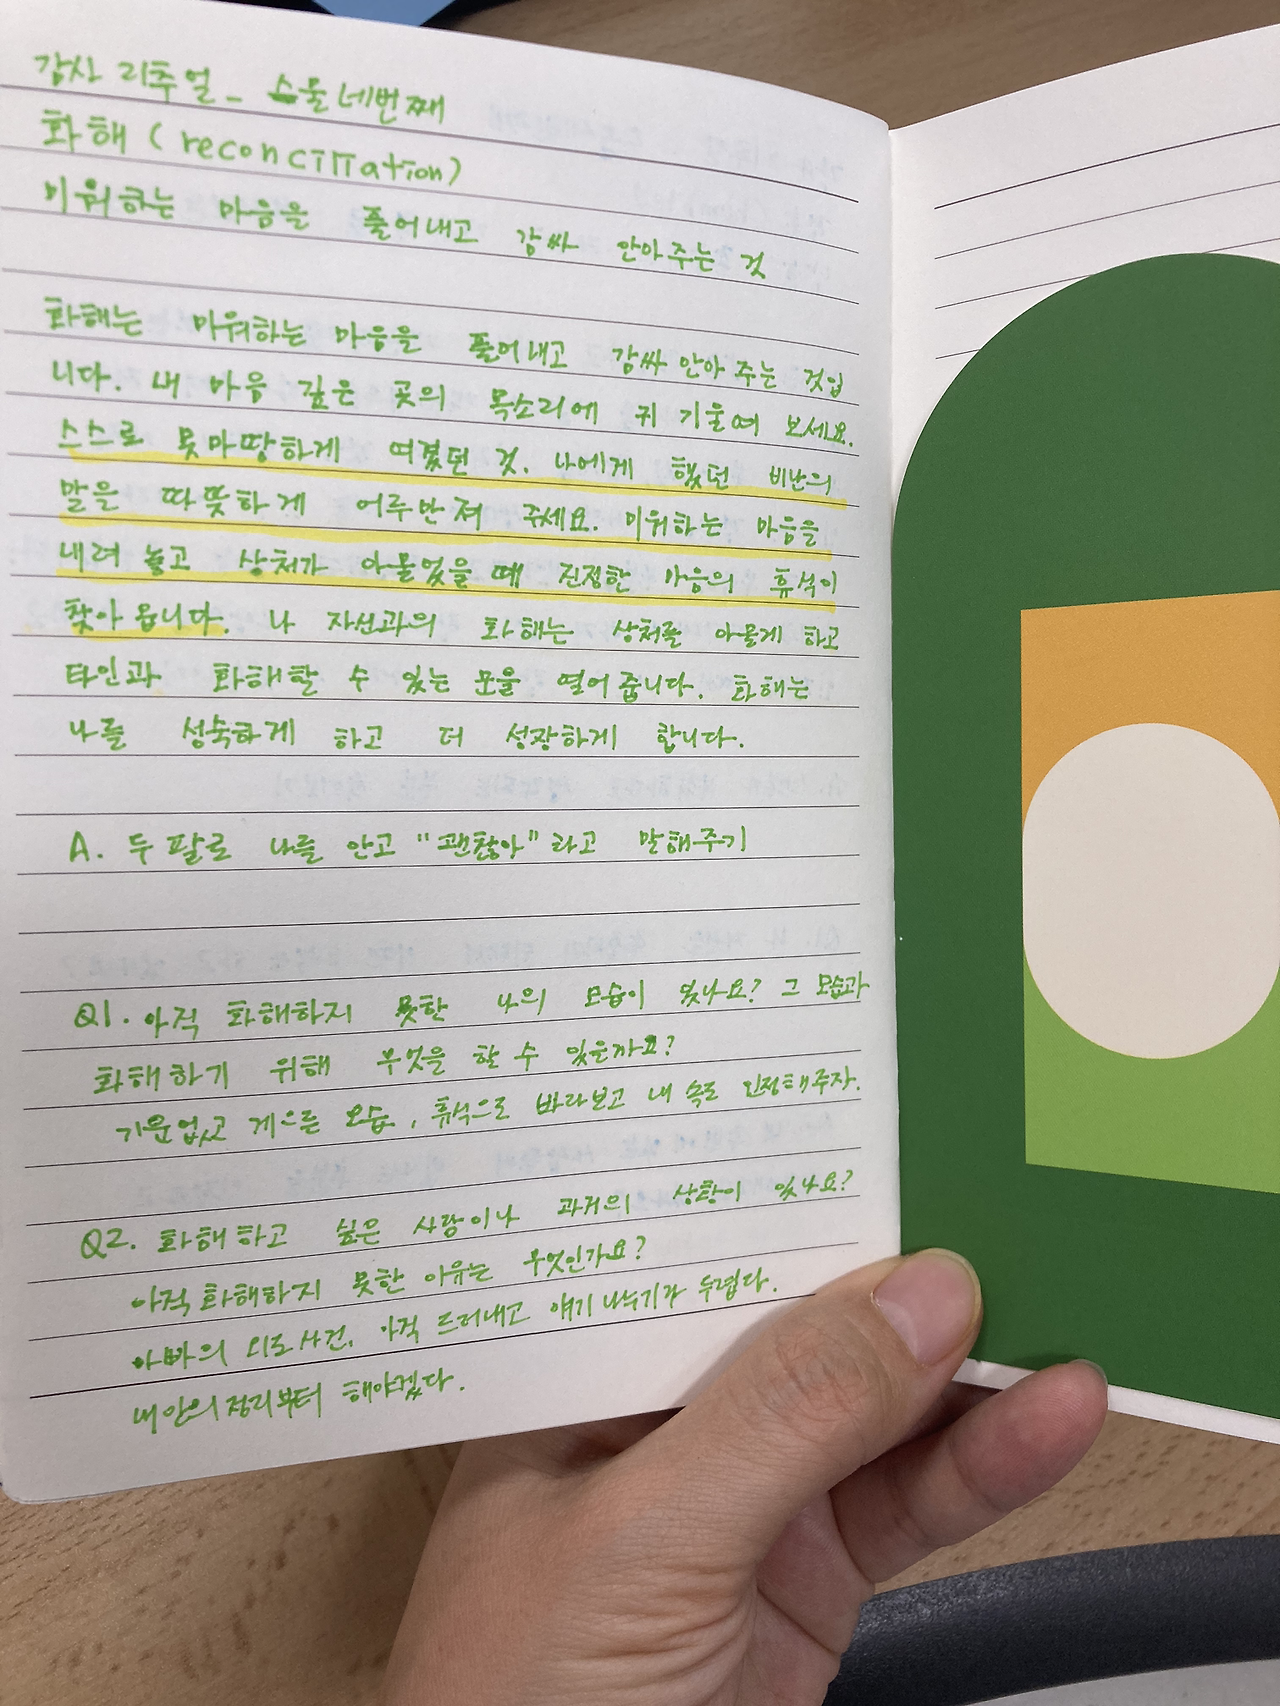 감사 리추얼_ 스물네번째
화해 (reconcillation)
미워하는 마음을 풀어내고 감싸 안아주는 것
화해는 미워하는 마음을 풀어내고 감싸 안아 주는 것입
니다. 내 마음 깊은 곳의 목소리에 귀 기울여 보세요.
스스로 못마땅하게 여겼던 것. 나에게 했던 비난의
말을 따뜻하게 어루만져 주세요. 미워하는 마음을
내려 놓고 상처가 아물었을 때 진정한 마음의 휴식이
찾아 옵니다. 나 자신과의 화해는 상처를 아물게 하고
타인과 화해할 수 있는 문을 열어 줍니다. 화해는
나를 성숙하게 하고 더 성장하게 합니다.
A. 두 팔로 나를 안고 "괜찮아"라고 말해주기
Q1. 아직 화해하지 못한 나의 모습이 있나요? 그 모습과
화해하기 위해 무엇을 할 수 있을까요?
기운없고 게으른 모습, 휴식으로 바라보고 내 속도 인정해주자.
Q2. 화해하고 싶은 사람이나 과거의 상황이 있나요?
아직 화해하지 못한 이유는 무엇인가요?
아빠의 외도사건. 아직 드러내고 얘기 나누기가 두렵다.
내 안의 정리부터 해야겠다.